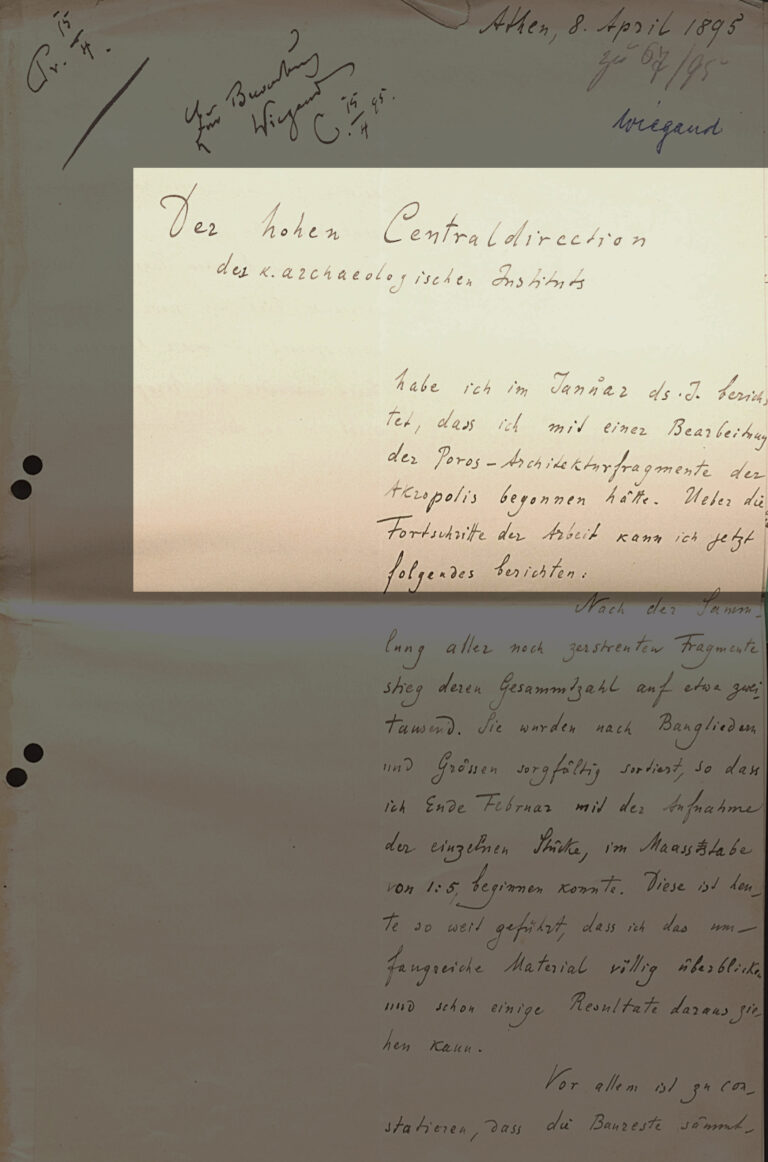 Athen, 8. April 1895
zu 67/95
Pr. 15/4.
Wiegand
C. 15/4 95.
Wiegand
Der hohen Centraldirection
des k. archaeologischen Instituts
habe ich im Januar ds. J. berich,
tet, dass ich mit einer Bearbeitung
der Poros-Architekturfragmente der
Akropolis begonnen hätte. Ueber die
Fortschritte der Arbeit kann ich jetzt
folgendes berichten:
Nach der Samm-
lung aller noch zerstreuten Fragmente
stieg deren Gesammtzahl auf etwa zwei-
tausend. Sie wurden nach Baugliedern
und Grössen sorgfältig sortiert, so dass
ich Ende Februar mit der Aufnahme
der einzelnen Stücke, im Maassstabe
von 1:5, beginnen konnte. Diese ist heu-
te so weit geführt, dass ich das um-
fangreiche Material völlig überblicken
und schon einige Resultate daraus zie-
hen kann.
Vor allem ist zu con-
statieren, dass die Baureste sämmt-